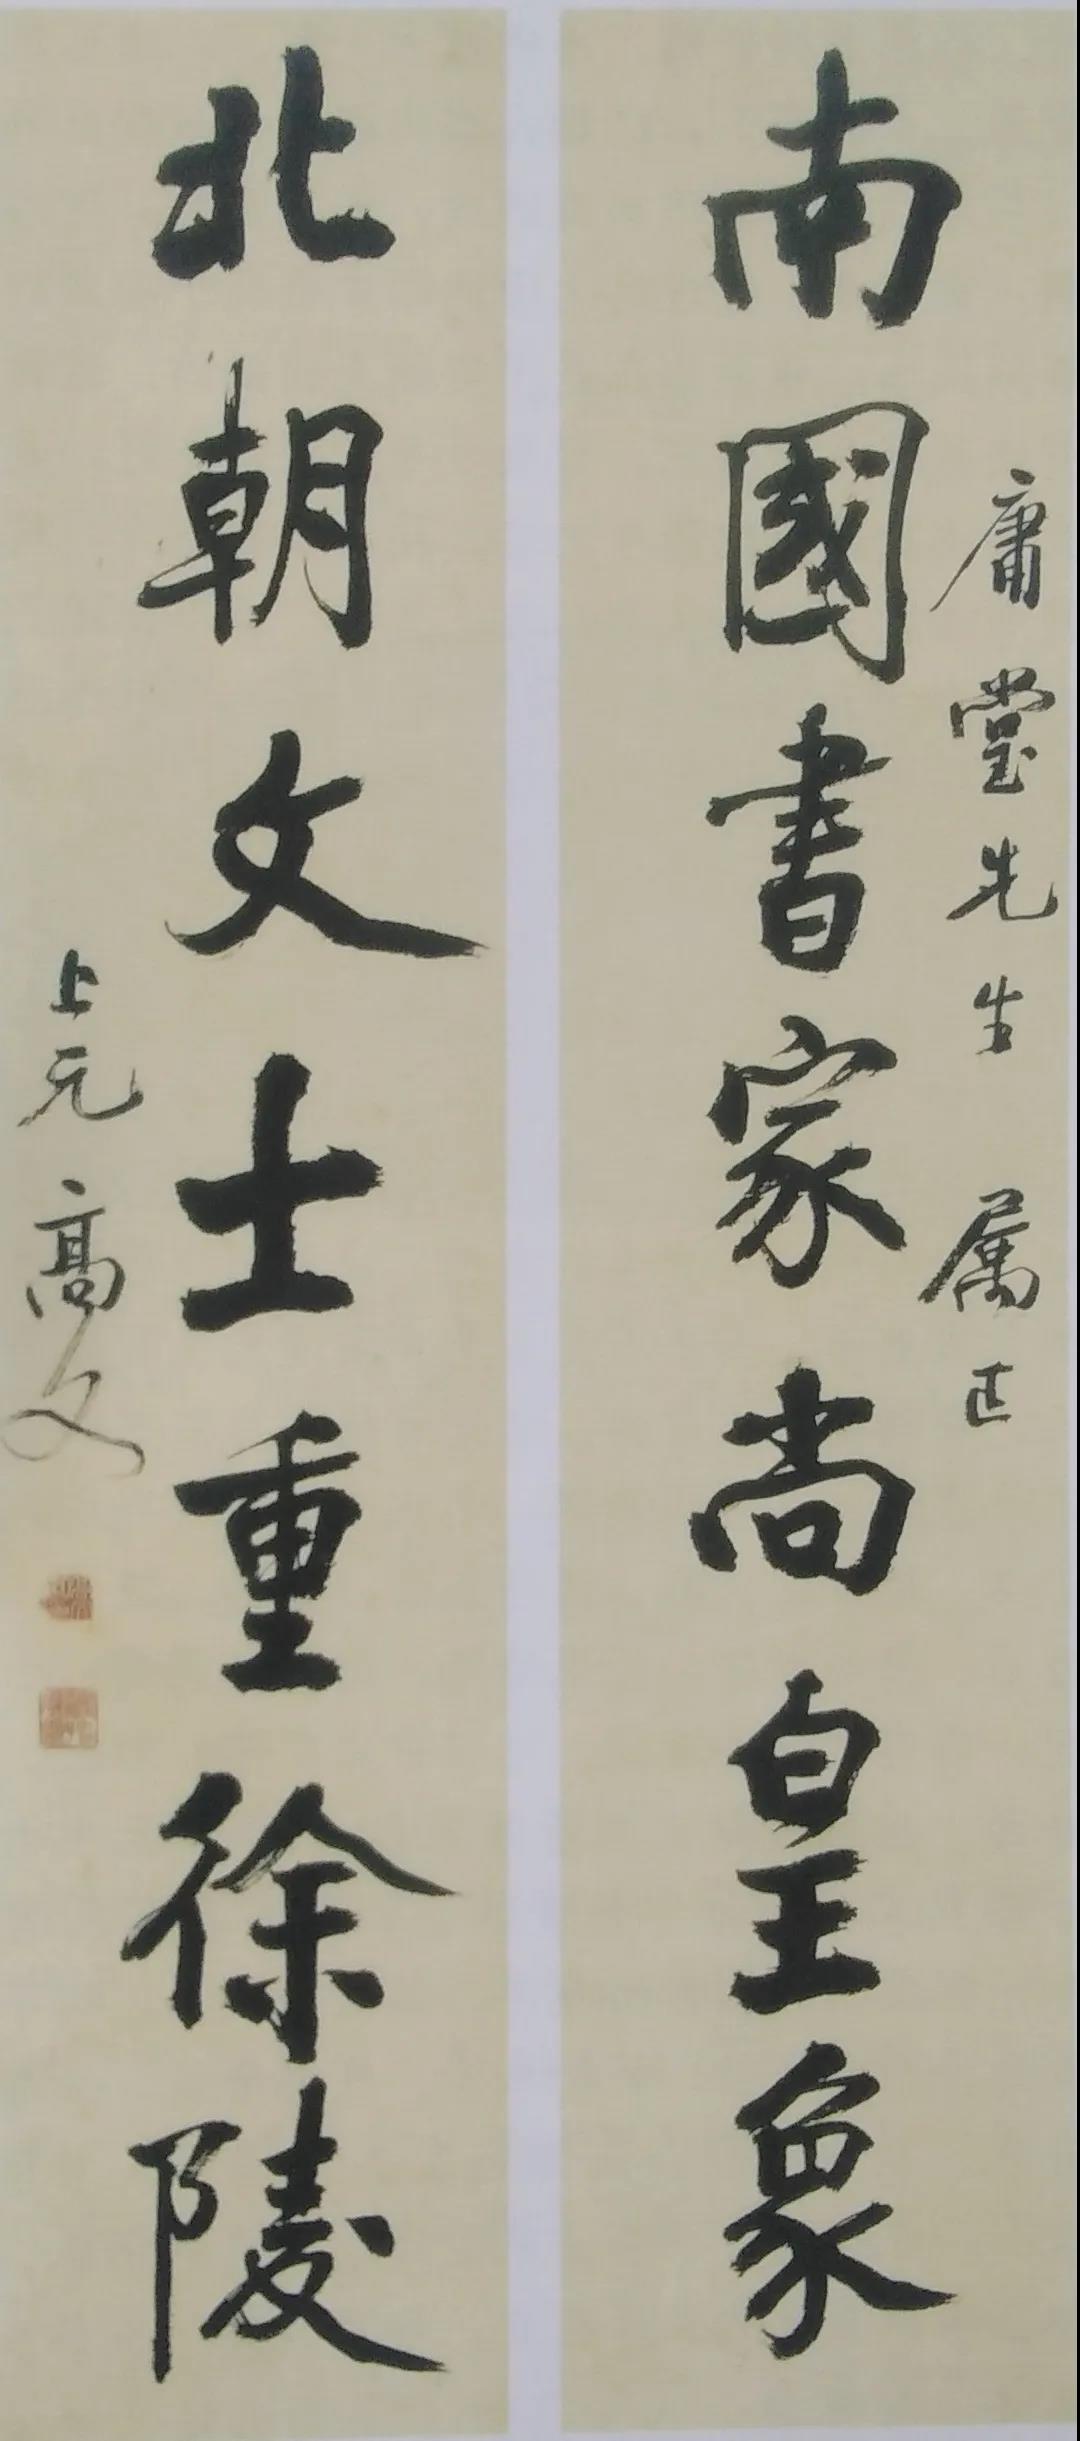 庸堂先生 属正
南國書家尚皇象
北朝文士重徐陵
上元高文